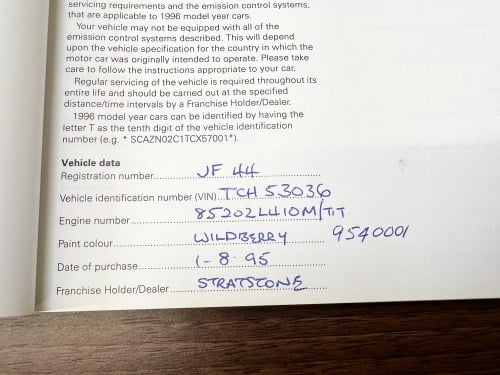 servicing requirements and the emission control systems,
that are applicable to 1996 model year cars.
Your vehicle may not be equipped with all of the
emission control systems described. This will depend
upon the vehicle specification for the country in which the
motor car was originally intended to operate. Please take
care to follow the instructions appropriate to your car.
Regular servicing of the vehicle is required throughout its
entire life and should be carried out at the specified
distance/time intervals by a Franchise Holder/Dealer.
1996 model year cars can be identified by having the
letter T as the tenth digit of the vehicle identification
number (e.g. * SCAZN02C1TCX57001*).
Vehicle data
Registration number.......... JF 44
Vehicle identification number (VIN).. TCH 53036
Engine number.......... 85202L410M/T1T
Paint colour.......... WILDBERRY 9540001
Date of purchase.......... 1-8-95
Franchise Holder/Dealer.......... STRATSTONE